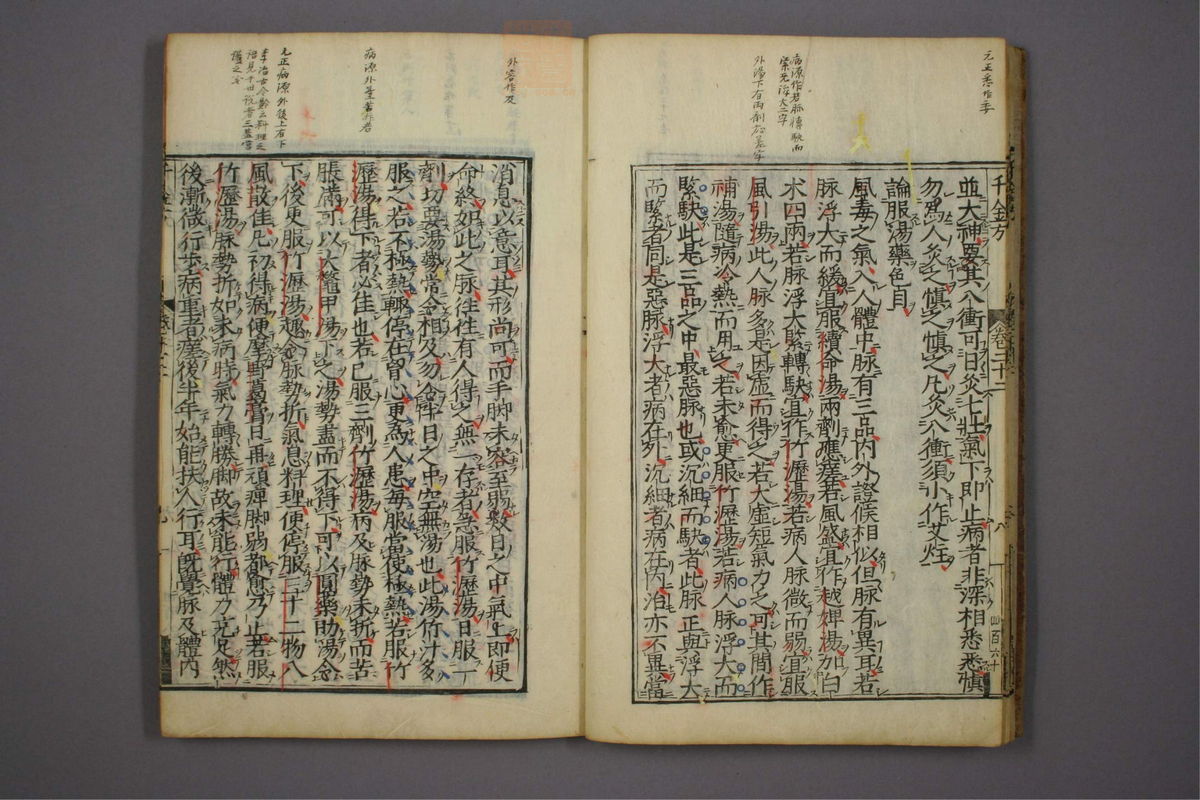 元正悉作委
千金方
卷二十二
八
四百六十
並大神要其八衝可日灸七壯氣下即止病者非深相悉悉慎
勿爲人灸之慎之慎之凡灸八衝須小作艾炷
論服湯藥色目
風毒之氣入人體中脉有三品内外證候相似但脉有異耳若
脉浮大而緩宜服續命湯兩劑應瘥若風盛宜作越婢湯加白
术四兩若脉浮大緊轉駃宜作竹瀝湯若病人脉微而弱宜服
風引湯此人脉多是因虛而得之若大虛短氣力乏可其間作
補湯隨病冷熱而用之若未愈更服竹瀝湯若病人脉浮大而
緊駃此是三品之中最惡脉也或沉細而駃者此脉正與浮大
而緊者同是惡脉浮大者病在外沉細者病在内治亦不異當
外容作及
消息以意耳其形尚可而手脚未容至弱數日之中氣上即便
命終如此之脉往往有人得之無一存者急服竹瀝湯日服一
劑切要湯勢常令相及勿令半日之中空無湯也此湯竹汁多
服之若不極熱輒停在胷心更爲人患每服當使極熱若服竹
瀝湯得下者必佳也若已服三劑竹瀝湯病及脉勢未折而苦
脹滿可以大鼈甲湯下之湯勢盡而不得下可以圓藥助湯令
下後更服竹瀝湯趣令脉勢折氣息料理便停服三十二物八
風散佳凡初得病便摩野葛膏日再頑痺脚弱都愈乃止若服
竹瀝湯脉勢折如未病時氣力轉勝脚故未能行體力充足然
後漸微行步病重者瘥後半年始能扶人行耳既覺脉及體内